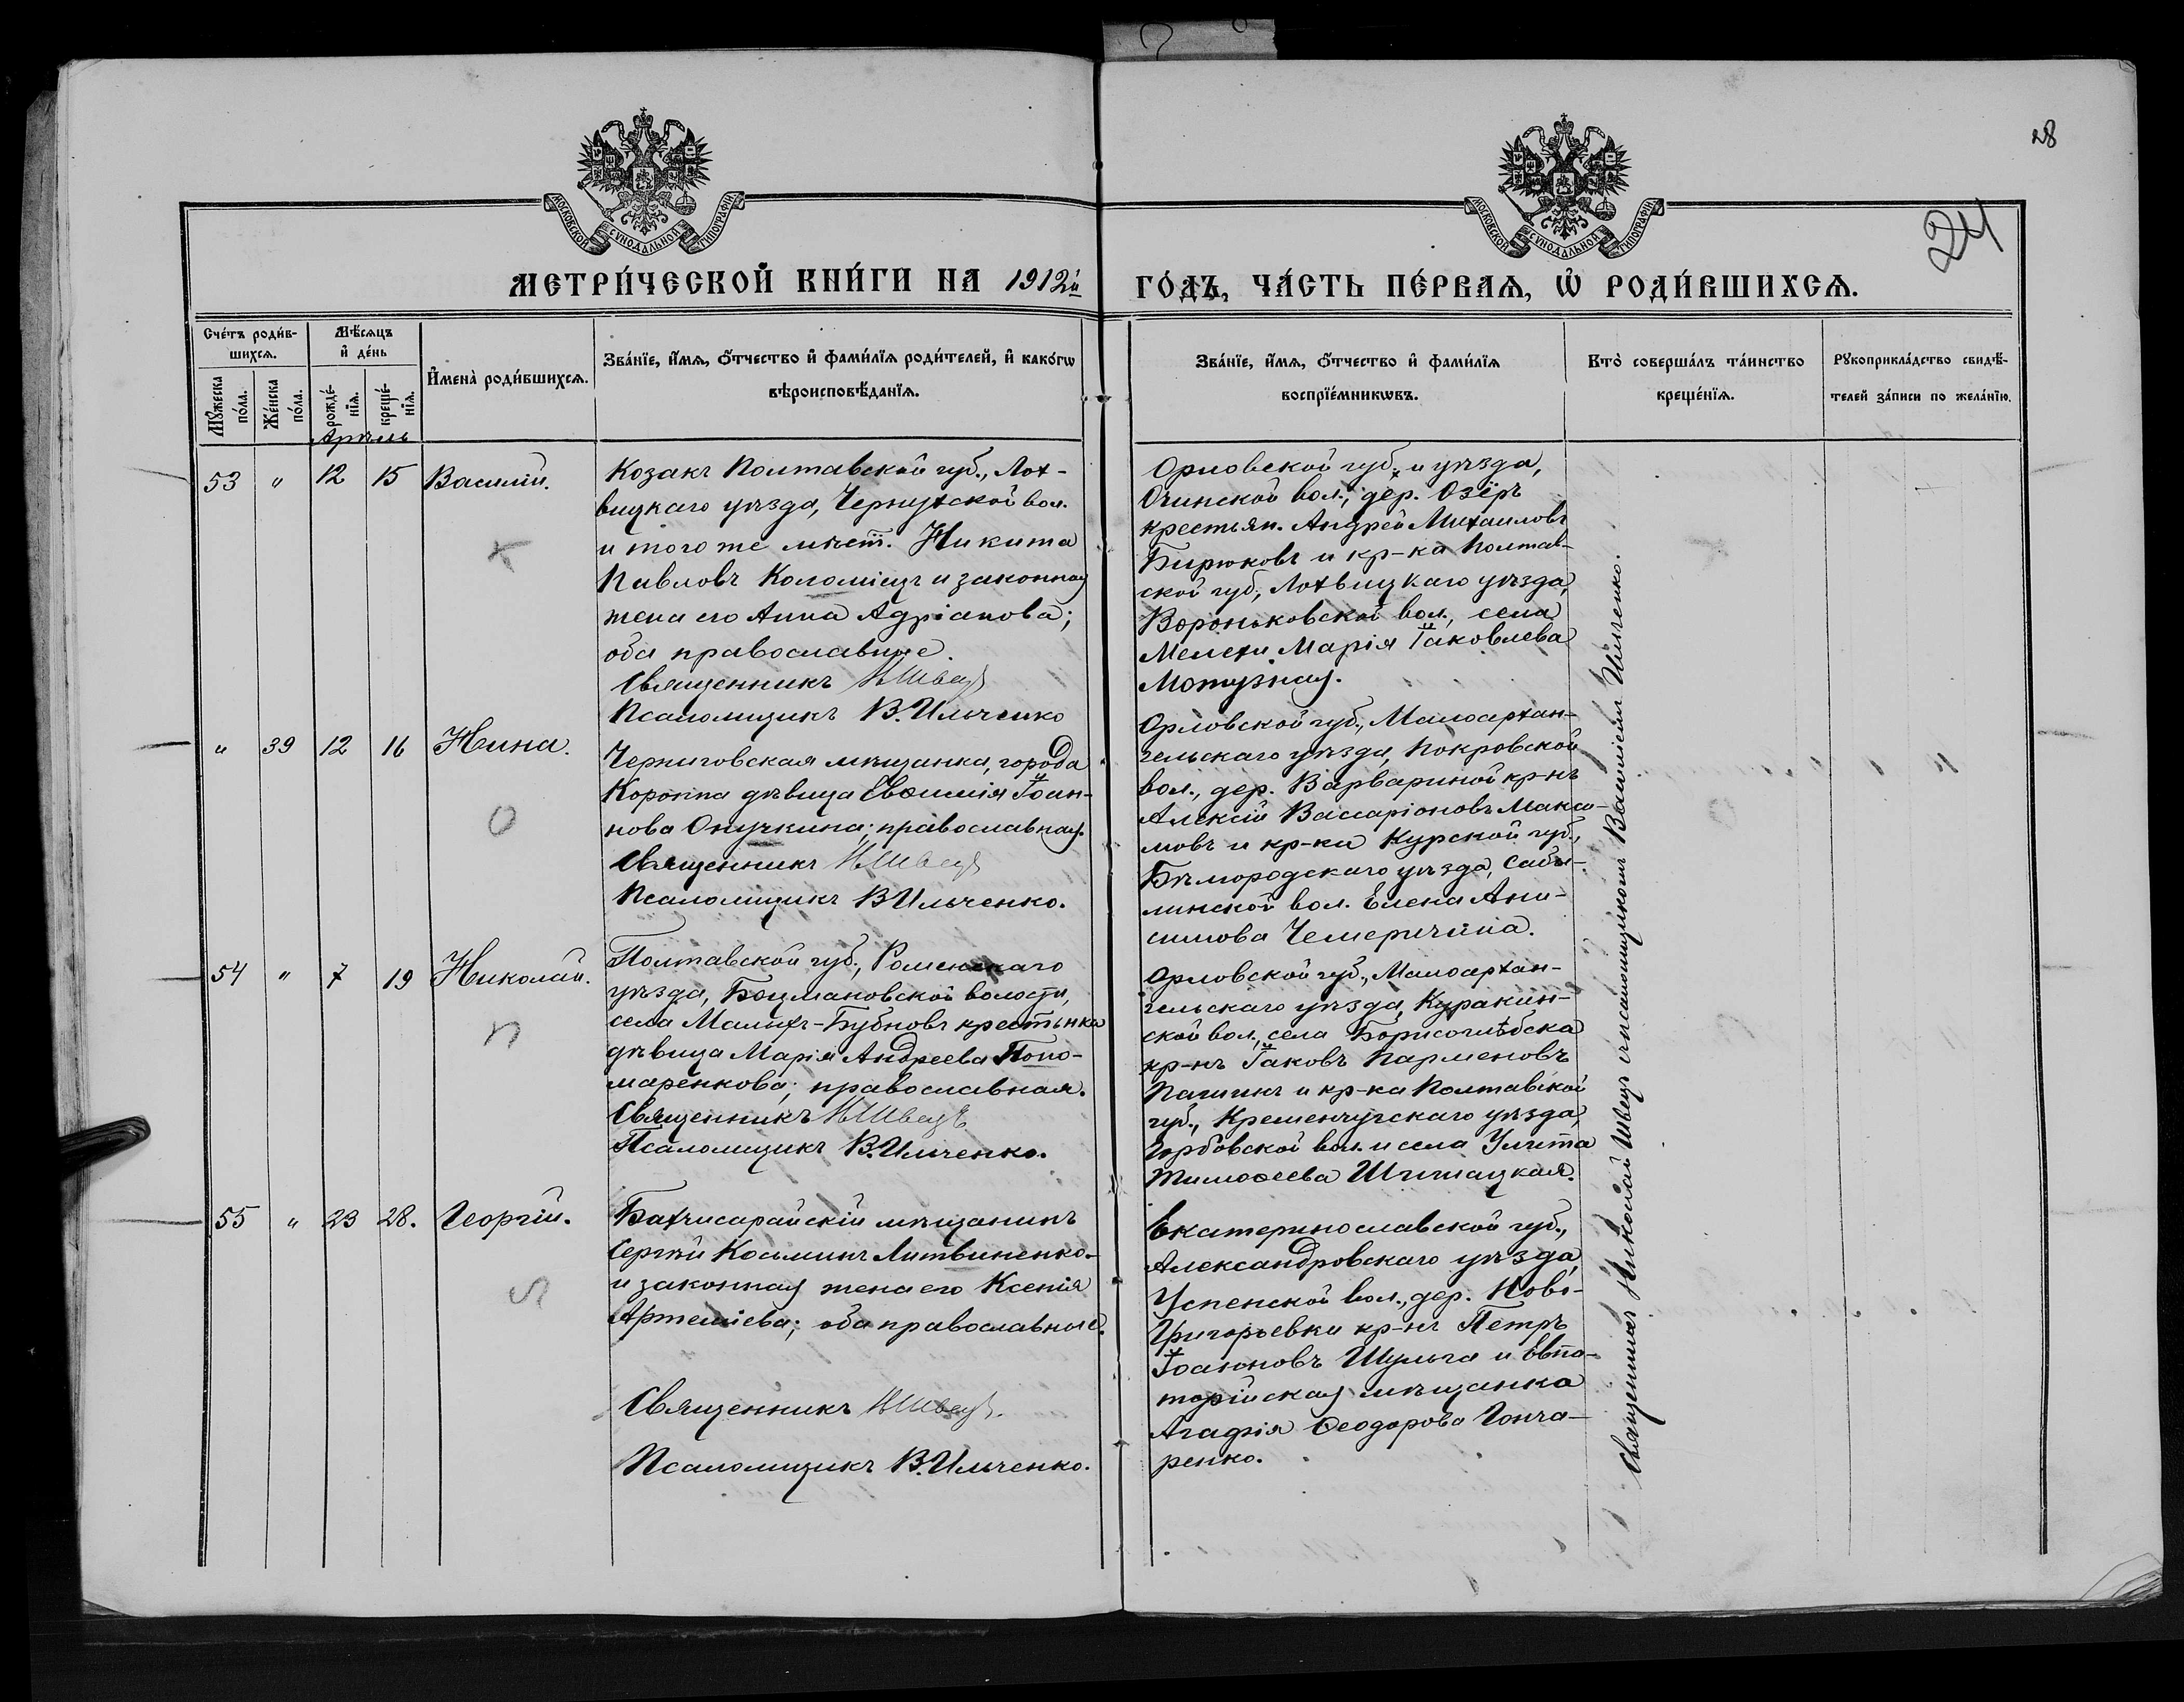 28
24
МОСКОВСКОЙ СѴНОДАЛЬНОЙ ТИПОГРАФІИ
МОСКОВСКОЙ СѴНОДАЛЬНОЙ ТИПОГРАФІИ
МЕТРИ́ЧЕСКОЙ КНИ́ГИ НА 1912й ГО́ДЪ, ЧА́СТЬ ПЕ́РВАѦ, Ѡ҆ РОДИ́ВШИХСѦ.
Сче́тъ роди́в-
шихсѧ.
Мꙋ́жеска по́ла.
Же́нска по́ла.
Мѣ́сѧцъ
и҆ де́нь
рожде́-
нїѧ.
креще́-
нїѧ.
И҆мена̀ роди́вшихсѧ.
Зва́нїе, и҆́мѧ, ѻ҆́тчество и҆ фами́лїѧ роди́телей, и҆ како́гѡ
вѣроисповѣ́данїѧ.
Зва́нїе, и҆́мѧ, ѻ҆́тчество и҆ фами́лїѧ
воспрїе́мникѡвъ.
Кто̀ соверша́лъ та́инство
креще́нїѧ.
Рꙋкоприкла́дство свидѣ́-
телей за́писи по жела́нїю.
Апрѣль
53 " 12 15 Василій.
Козакъ Полтавской губ., Лох-
вицкаго уѣзда, Чернухской вол.
и того же мѣст. Никита
Павловъ Коломіецъ и законная
жена его Анна Адріанова;
оба православные.
Священникъ Н Швецъ
Псаломщикъ В. Ильченко
Орловской губ. и уѣзда,
вол., дер. Озёръ
крестьян. Андрей Михаиловъ
Бирюковъ и кр-ка Полтав-
ской губ., Лохвицкаго уѣзда,
Вороньковской вол., села
Мелехи Марія Іаковлева
Мотузная.
" 39 12 16 Нина.
Черниговская мѣщанка, города
Коропа дѣвица Евѳимія Іоан-
нова Онучкина; православная.
Священникъ Н Швецъ
Псаломщикъ В Ильченко.
Орловской губ., Малоархан-
гельскаго уѣзда, Покровской
вол., дер. Варвариной кр-нъ
Алексій Вассаріоновъ Макси-
мовъ и кр-ка Курской губ.,
Бѣлгородскаго уѣзда, Сабы-
линской вол. Елена Ани-
симова
54 " 7 19 Николай.
Полтавской губ., Роменскаго
уѣзда, волости,
села Малихъ-Бубновъ крестьянка
дѣвица Марія Андреева Поно-
маренкова; православная.
Священникъ Н Швецъ
Псаломщикъ В. Ильченко.
Орловской губ., Малоархан-
гельскаго уѣзда, Куракин-
ской вол., села Борисоглѣбска
кр-нъ Іаковъ Парменовъ
и кр-ка Полтавской
губ., Кременчугскаго уѣзда,
вол. и села Улита
Тимоѳеева Шишацкая.
55 " 23 28. Георгій.
Бахчисарайскій мѣщанинъ
Сергѣй Косьминъ Литвиненко
и законная жена его Ксенія
Артеміева; оба православные.
Священникъ Н Швецъ.
Псаломщикъ В. Ильченко.
Екатеринославской губ.,
Александровскаго уѣзда,
Успенской вол., дер. Ново-
Григорьевки кр-нъ Петръ
Іоанновъ Шульга и Евпа-
торійская мѣщанка
Агафія Ѳеодорова Гонча-
ренко.
Священникъ Николай Швецъ съ псаломщикомъ Василіемъ Ильченко.